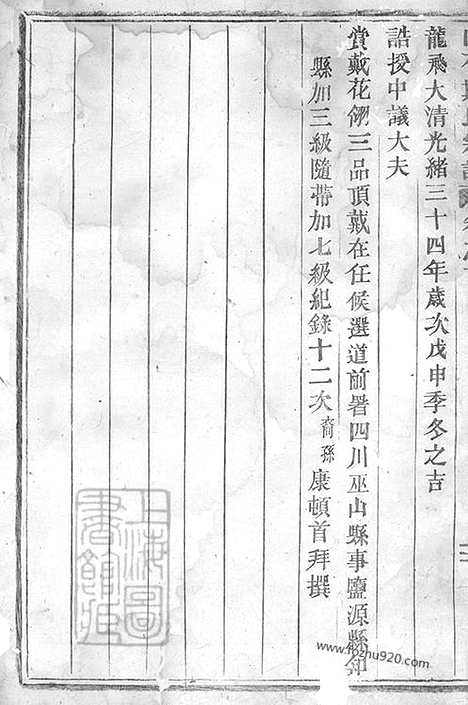 龍飛大清光緒三十四年歲次戊申季冬之吉
誥授中議大夫
賞戴花翎三品頂戴在任候選道前署四川巫山縣事鹽源縣知
縣加三級隨帶加七級紀錄十二次裔孫康頓首拜撰
上海圖
書館藏
www.fozhu920.com